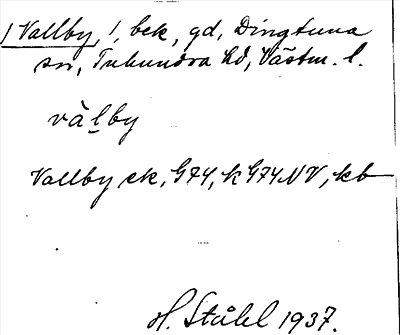 /Vallby, /, bek, gd, Dingtuna
sn, Tuhundra hd, Västm. l.
välby
Vallby ek, G74, k G74 NV, kb
H. Ståhl 1937.